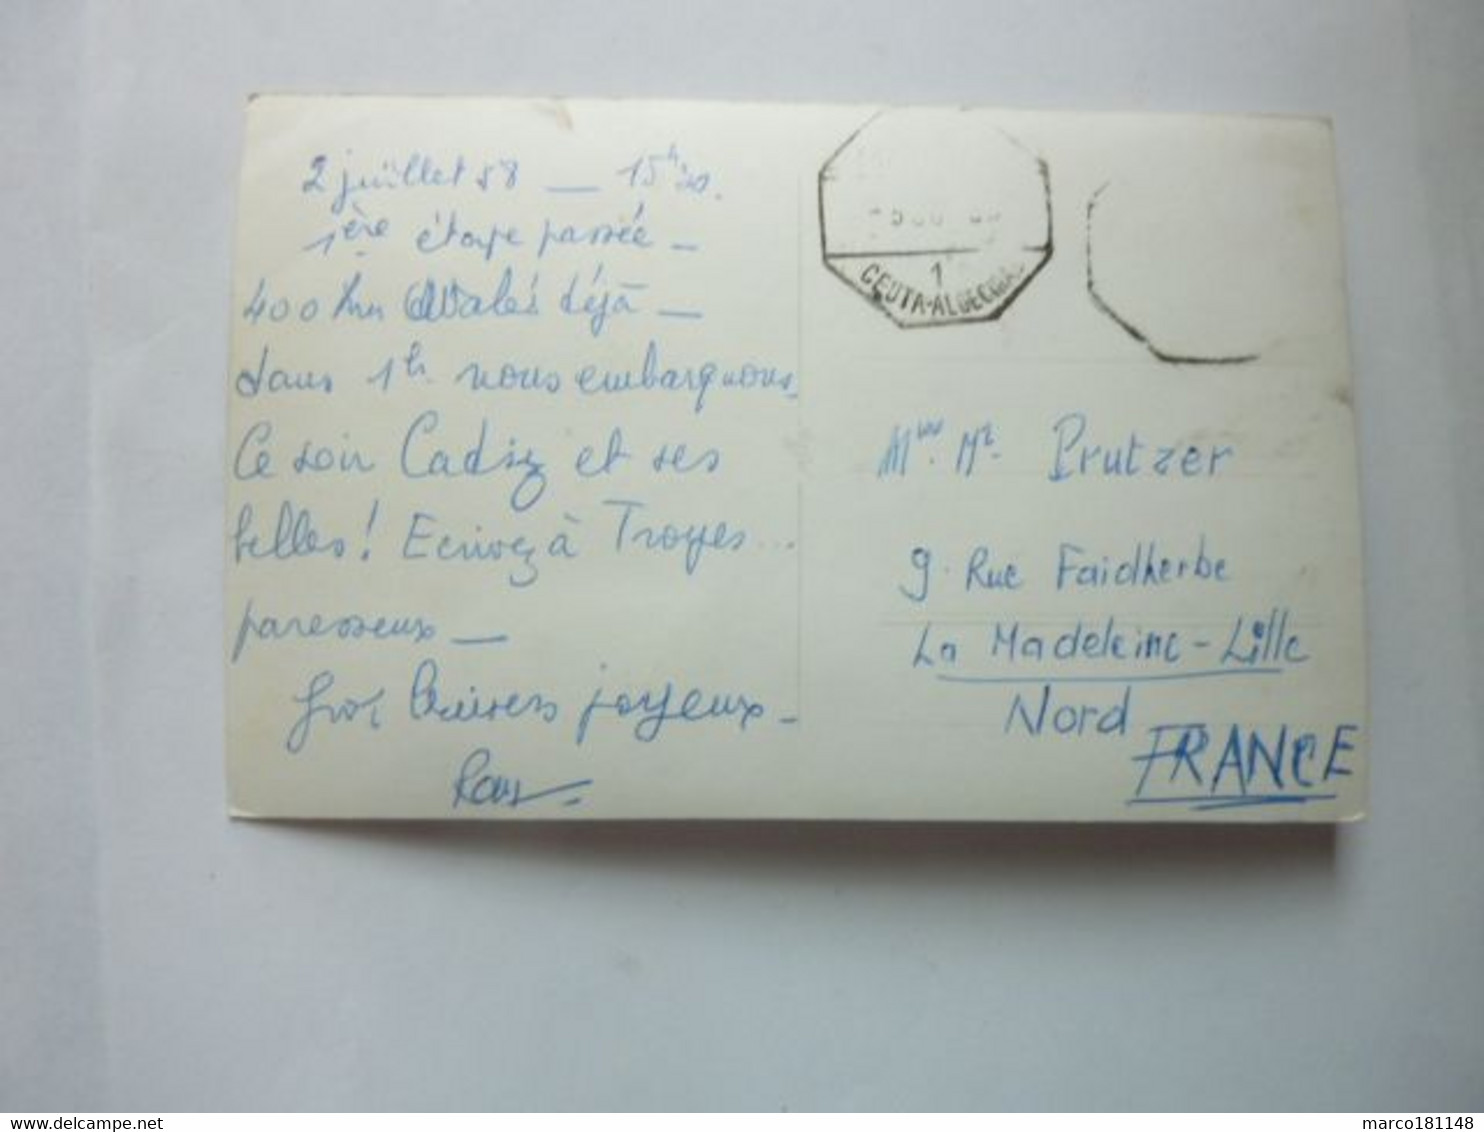 2 juillet 58 — 15h
1ère étape passée —
400 km avalés déjà —
dans 1h nous embarquons.
Ce soir Cadiz et ses
belles! Ecrivez à Troyes...
paresseux —
Gros baisers joyeux —
1
CEUTA-ALGECIRAS
Mr. Prutzer
9 Rue Faidherbe
La Madeleine - Lille
Nord
FRANCE
marco181148